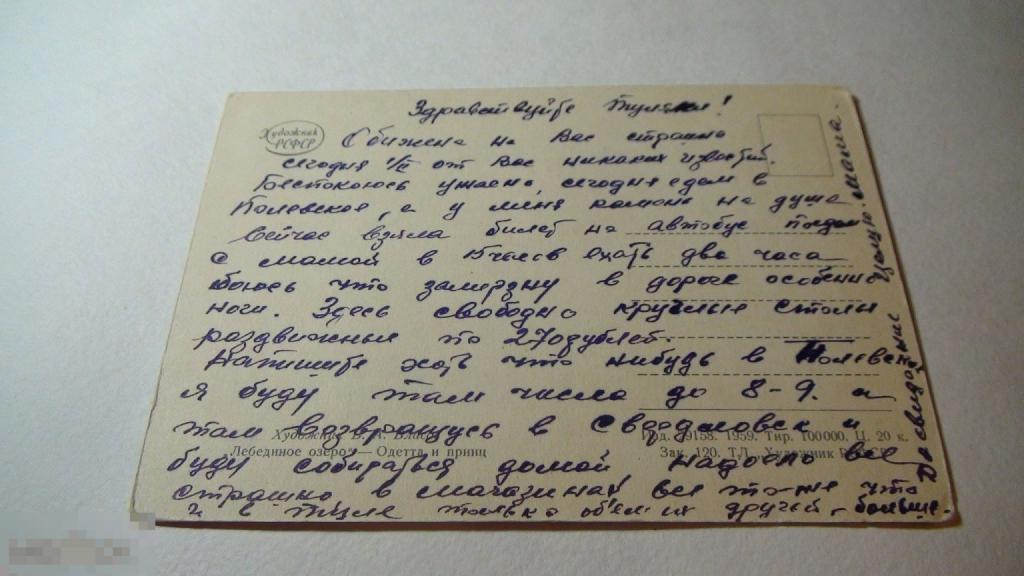 Здравствуйте Туляки!
Художник
РСФСР
Обижена на Вас страшно
сегодня 1/II от Вас никаких известий.
Беспокоюсь ужасно, сегодня едем в
Полевское, а у меня камень на душе.
Сейчас взяла билет на автобус поедем
с мамой в 5 часов ехать два часа
боюсь что замерзну в дороге особенно
ноги. Здесь свободно круглые столы
раздвижные по 270 рублей.
Напишите хоть что нибудь в Полевск
я буду там числа до 8-9. а
там возвращусь в Свердловск и
Художник
Изд. 9158. 1959. Тир. 100000. Ц. 20 к.
Лебединое озеро — Одетта и принц
Зак. 120. Т.Л. Художник
буду собираться домой надоело все
страшно, в магазинах все то-же что
и в Туле только об'ем их другой, больше.
До свидание Целую. мама.